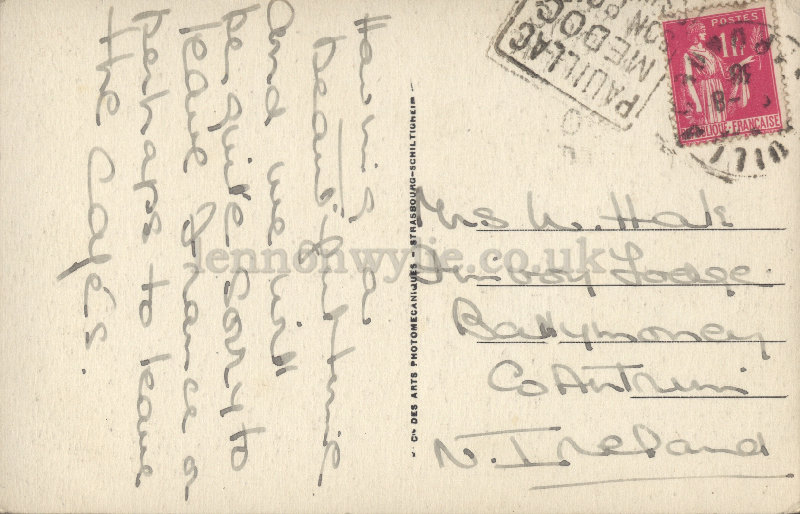 Having a
beautiful time
and we will
be quite sorry to
leave France &
perhaps to leave
the Cafés.
Cie DES ARTS PHOTOMECANIQUES - STRASBOURG-SCHILTIGHEIM
PAUILLAC
MEDOC
SON
POSTES
1F
REPUBLIQUE-FRANCAISE
18
8-
Mrs W. Hale
Lodge
Ballymoney
Co Antrim
N. Ireland
lennonwylie.co.uk